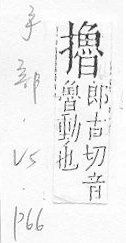 手部.V5.p66
擼
郎古切音
魯動也